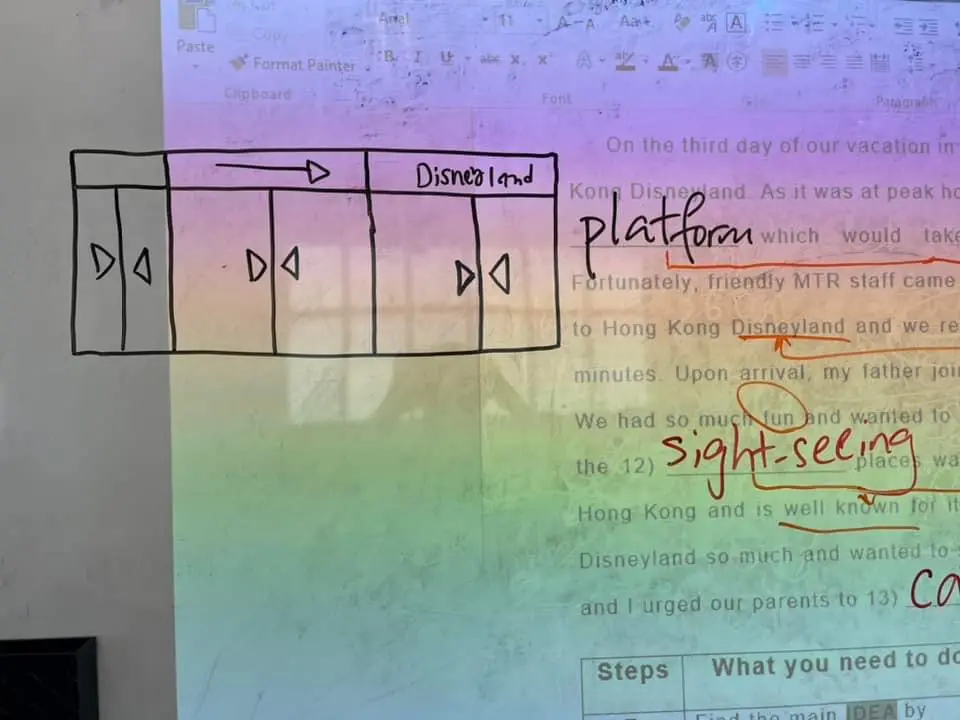 Arial 11
Copy
Paste
Format Painter
Clipboard
Font
Paragraph
Disneyland
On the third day of our vacation in
Kong Disneyland. As it was at peak ho
platform which would take
Fortunately, friendly MTR staff came
to Hong Kong Disneyland and we re
minutes. Upon arrival, my father join
We had so much fun and wanted to
the 12) sight-seeing places wa
Hong Kong and is well known for it
Disneyland so much and wanted to
and I urged our parents to 13) ca
Steps What you need to do
Find the main IDEA by